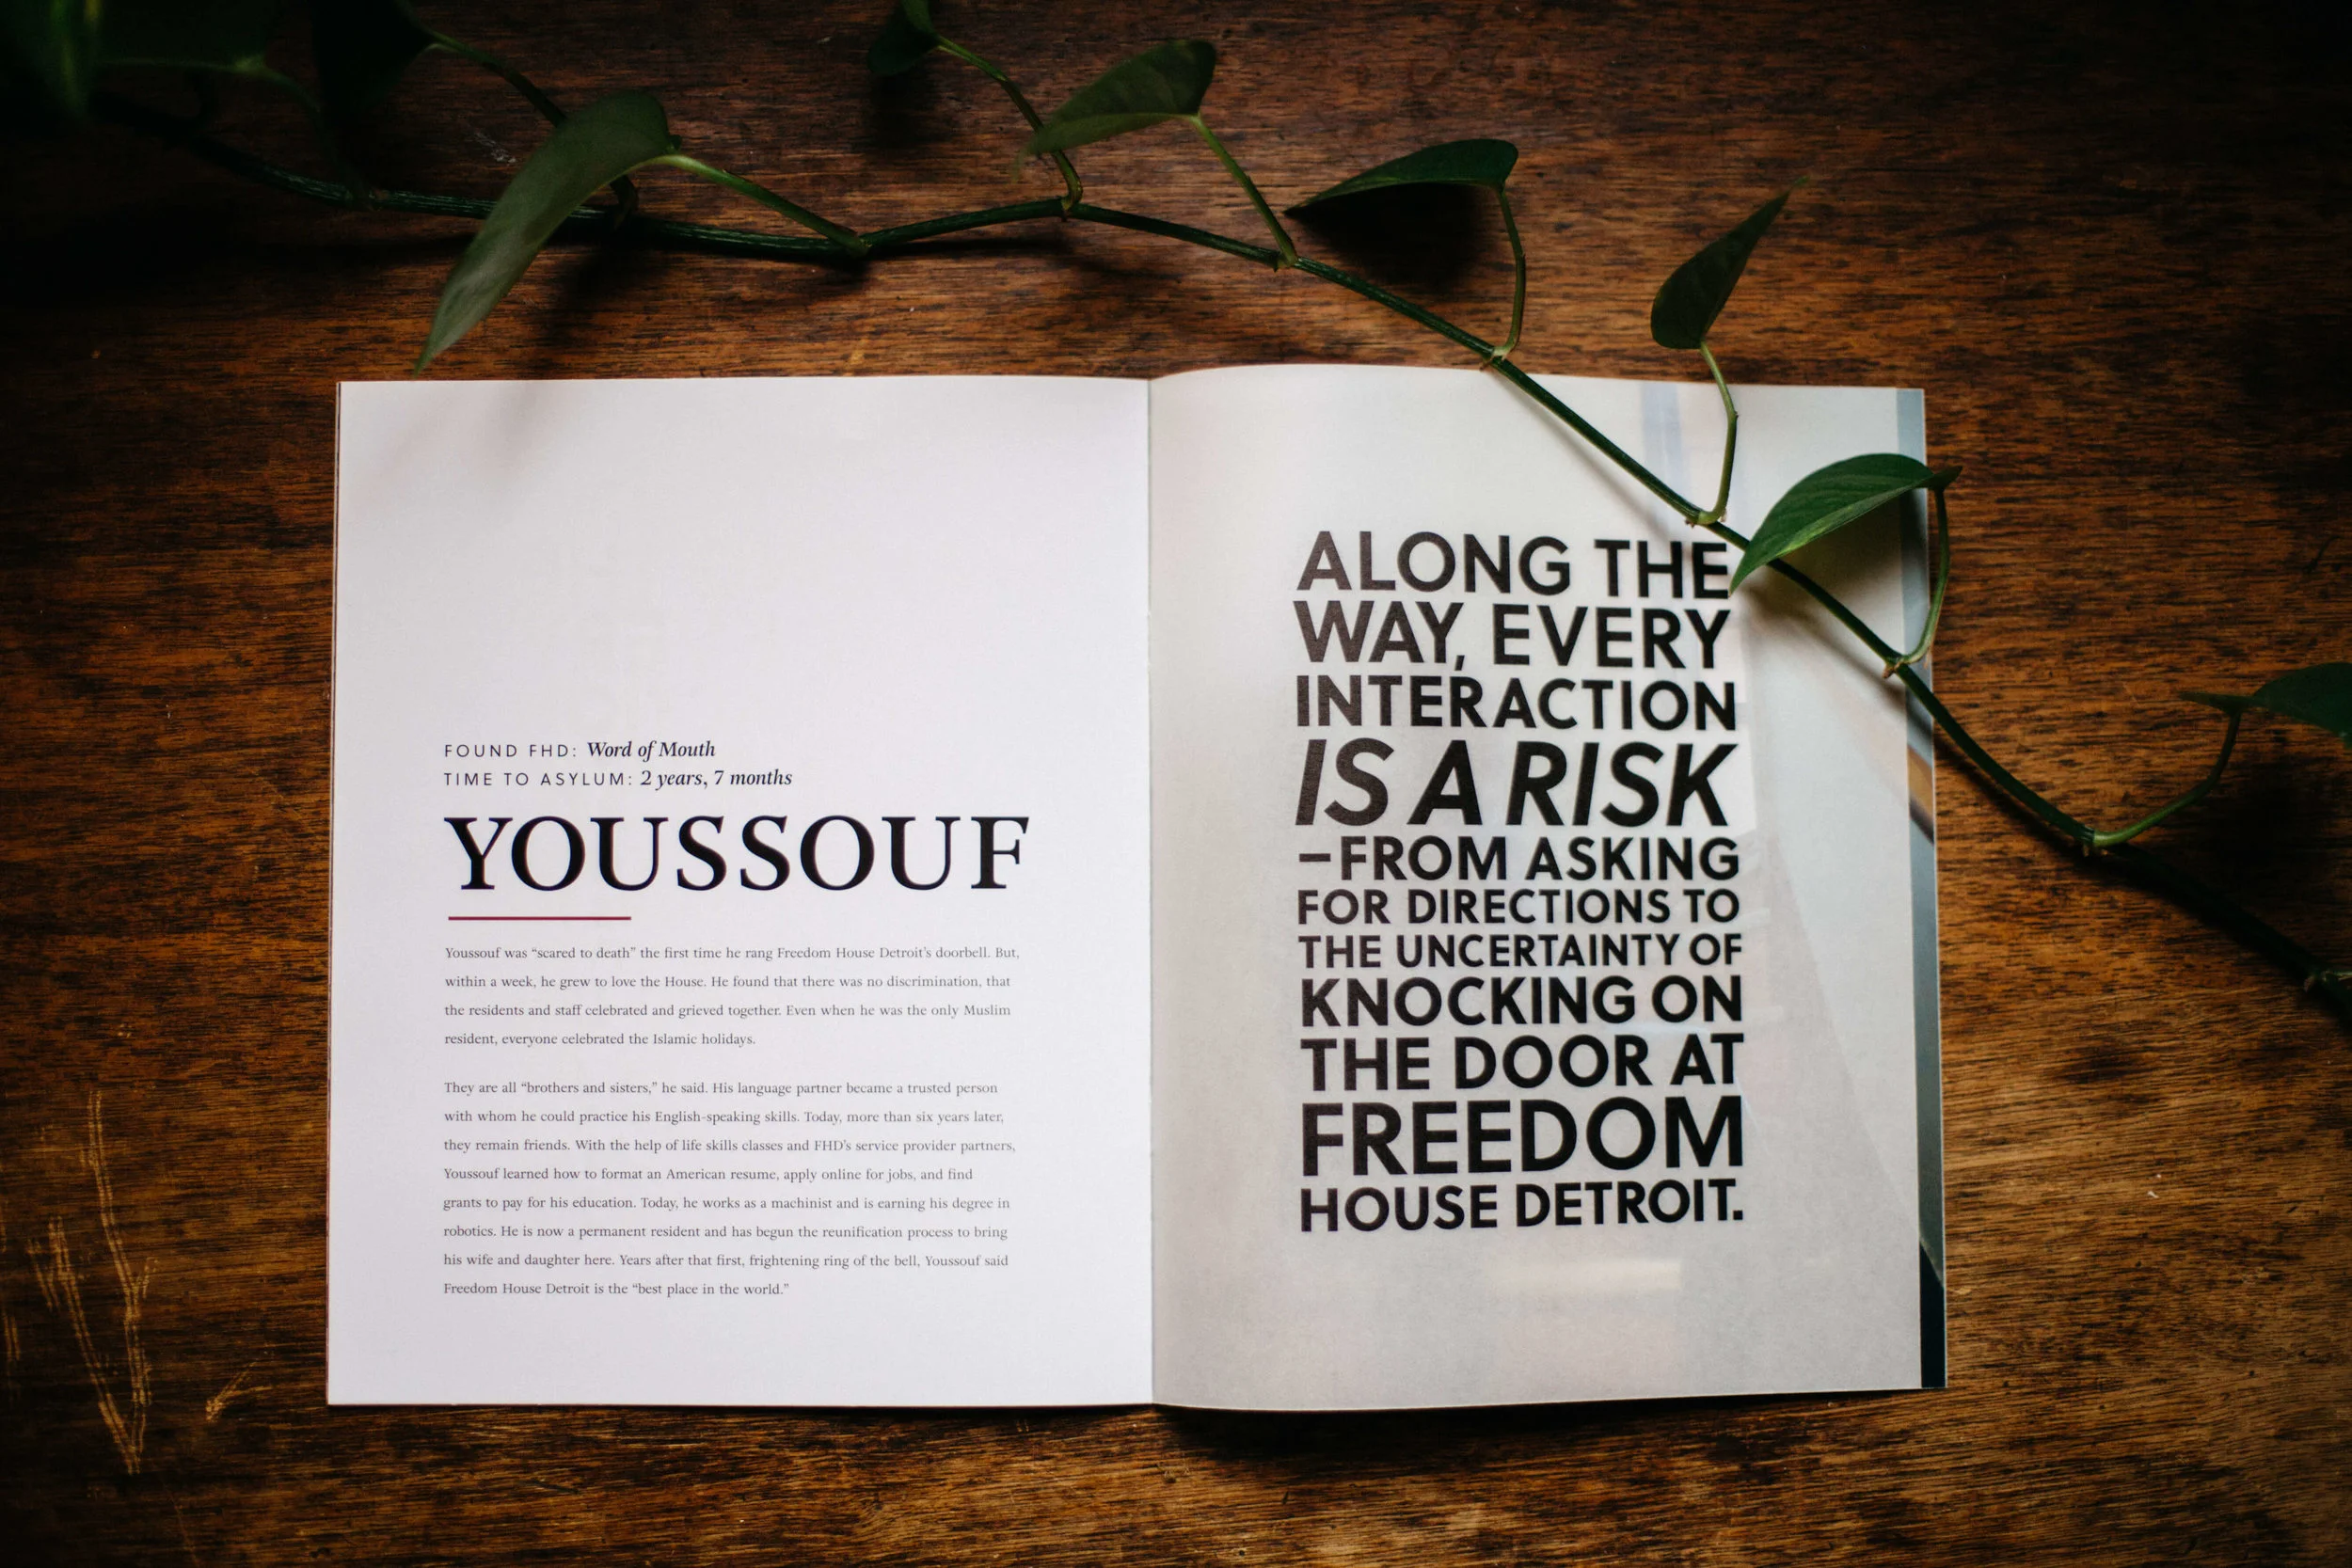 FOUND FHD: Word of Mouth
TIME TO ASYLUM: 2 years, 7 months
YOUSSOUF
Youssouf was “scared to death” the first time he rang Freedom House Detroit’s doorbell. But,
within a week, he grew to love the House. He found that there was no discrimination, that
the residents and staff celebrated and grieved together. Even when he was the only Muslim
resident, everyone celebrated the Islamic holidays.
They are all “brothers and sisters,” he said. His language partner became a trusted person
with whom he could practice his English-speaking skills. Today, more than six years later,
they remain friends. With the help of life skills classes and FHD’s service provider partners,
Youssouf learned how to format an American resume, apply online for jobs, and find
grants to pay for his education. Today, he works as a machinist and is earning his degree in
robotics. He is now a permanent resident and has begun the reunification process to bring
his wife and daughter here. Years after that first, frightening ring of the bell, Youssouf said
Freedom House Detroit is the “best place in the world.”
ALONG THE
WAY, EVERY
INTERACTION
IS A RISK
–FROM ASKING
FOR DIRECTIONS TO
THE UNCERTAINTY OF
KNOCKING ON
THE DOOR AT
FREEDOM
HOUSE DETROIT.